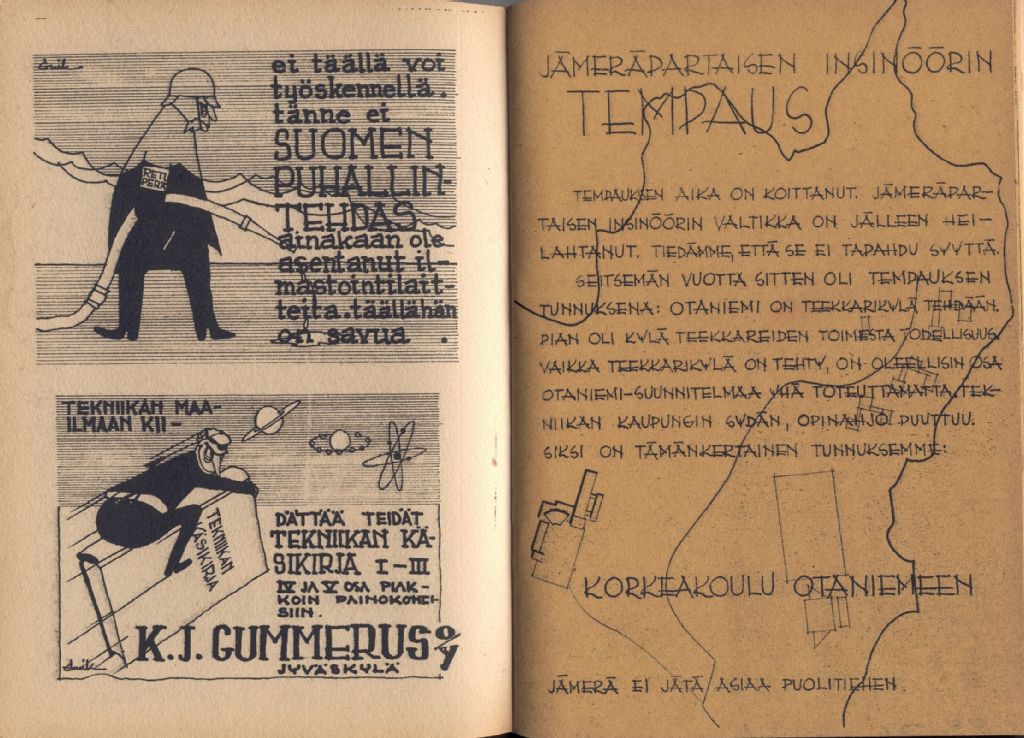 ei täällä voi
työskennellä.
tänne ei
SUOMEN
PUHALLIN-
TEHDAS
ainakaan ole
asentanut il-
mastointilait-
teita. täällähän
on savua.
RETU
PERÄ
TEKNIIKAN MAA-
ILMAAN KII-
DÄTTÄÄ TEIDÄT
TEKNIIKAN KÄ-
SIKIRJA I-III
IV JA V OSA PIAK-
KOIN PAINOKONEI-
SIIN.
TEKNIIKAN
KÄSIKIRJA
K.J. GUMMERUS O/Y
JYVÄSKYLÄ
JÄMERÄPARTAISEN INSINÖÖRIN
TEMPAUS
TEMPAUKSEN AIKA ON KOITTANUT. JÄMERÄPAR-
TAISEN INSINÖÖRIN VALTIKKA ON JÄLLEEN HEI-
LAHTANUT. TIEDÄMME, ETTÄ SE EI TAPAHDU SYYTTÄ.
SEITSEMÄN VUOTTA SITTEN OLI TEMPAUKSEN
TUNNUKSENA: OTANIEMI ON TEEKKARIKYLÄ TEHDÄÄN.
PIAN OLI KYLÄ TEEKKAREIDEN TOIMESTA TODELLISUUS.
VAIKKA TEEKKARIKYLÄ ON TEHTY, ON OLEELLISIN OSA
OTANIEMI-SUUNNITELMAA YHÄ TOTEUTTAMATTA. TEK-
NIIKAN KAUPUNGIN SYDÄN, OPINAHJO PUUTTUU.
SIKSI ON TÄMÄNKERTAINEN TUNNUKSEMME:
KORKEAKOULU OTANIEMEEN
JÄMERÄ EI JÄTÄ ASIAA PUOLITIEHEN.